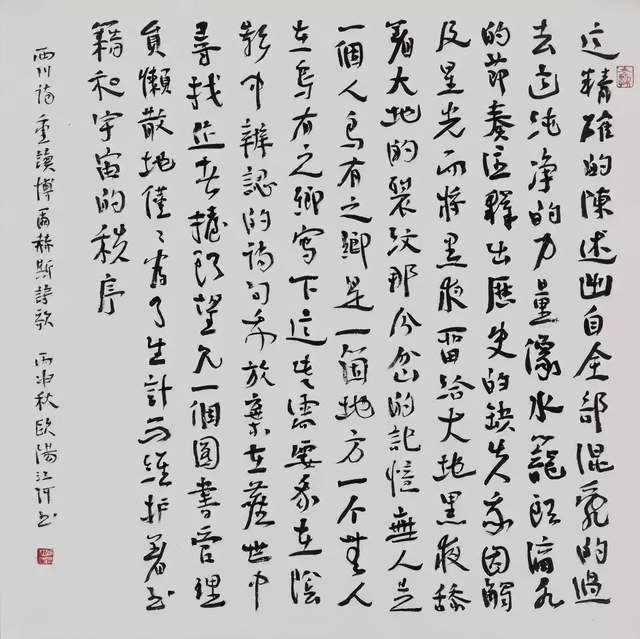 这精確的陳述出自全部混亂的過
去这純净的力量像水籠頭滴水
的節奏注釋出歷史的缺失我因觸
及星光而將黑夜留給大地黑夜舔
着大地的裂紋那分岔的記憶無人是
一個人烏有之鄉是一箇地方一个無人
在烏有之鄉寫下這些需要我在陰
影中辨認的詩句我放棄在塵世中
尋找作者擡頭望見一個圖書管理
員懶散地僅々為了生計而維护着书
籍和宇宙的秩序
西川詩重讀博爾赫斯詩歌 丙申秋歐陽江河书